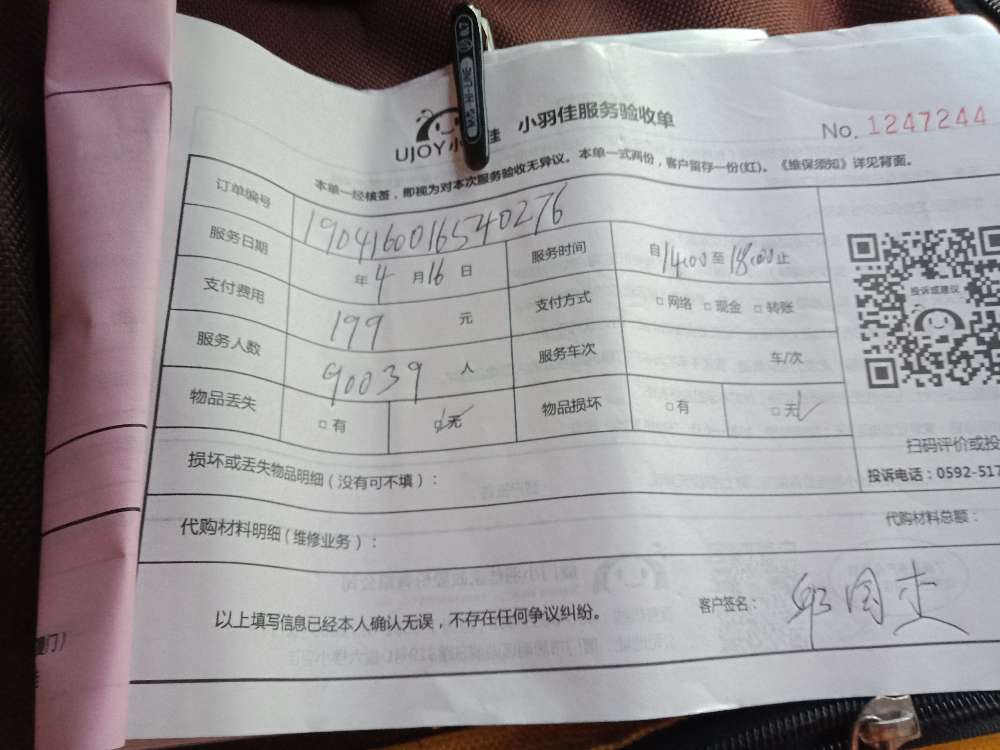 UJOY小 佳 小羽佳服务验收单
No. 1247244
本单一经核签，即视为对本次服务验收无异议。本单一式两份，客户留存一份(红)。《维保须知》详见背面。
订单编号 1904160016540276
服务日期 年4月16日 服务时间 自14:00至18:00止
支付费用 199 元 支付方式 □网络 □现金 □转账
服务人数 90039 人 服务车次 车/次
物品丢失 □有 □无 物品损坏 □有 □无
投诉或建议
扫码评价或投
投诉电话：0592-517
损坏或丢失物品明细（没有可不填）：
代购材料明细（维修业务）：
代购材料总额：
以上填写信息已经本人确认无误，不存在任何争议纠纷。
客户签名：